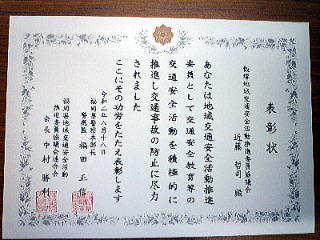 表彰状
飯塚地域交通安全活動推進委員協議会
近藤 哲司 殿
あなたは地域交通安全活動推進
委員として交通安全教育等の
交通安全活動を積極的に
推進し交通事故の防止に尽力
されました
ここにその功労をたたえ表彰します
令和二年八月十八日
福岡県警察本部長
警視監 福田 正信
福岡県地域交通安全活動
推進委員協議会連合会
会長 中村 勝利